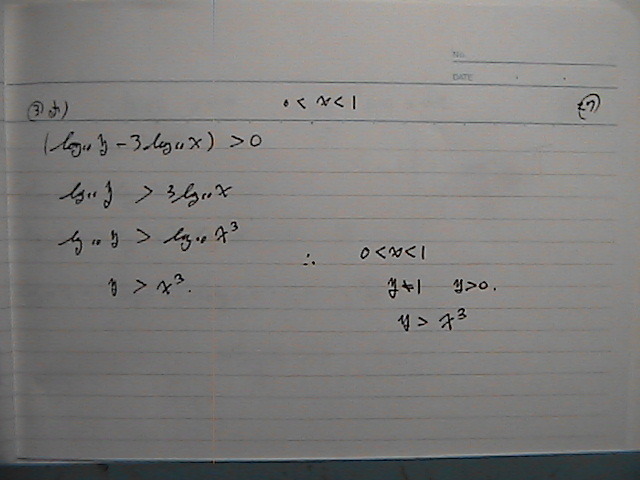 NO.
DATE
0 < x < 1
(log₁₀ y − 3 log₁₀ x) > 0
log₁₀ y > 3 log₁₀ x
log₁₀ y > log₁₀ x³
y > x³.
∴ 0 < x < 1
y ≠ 1 y > 0.
y > x³